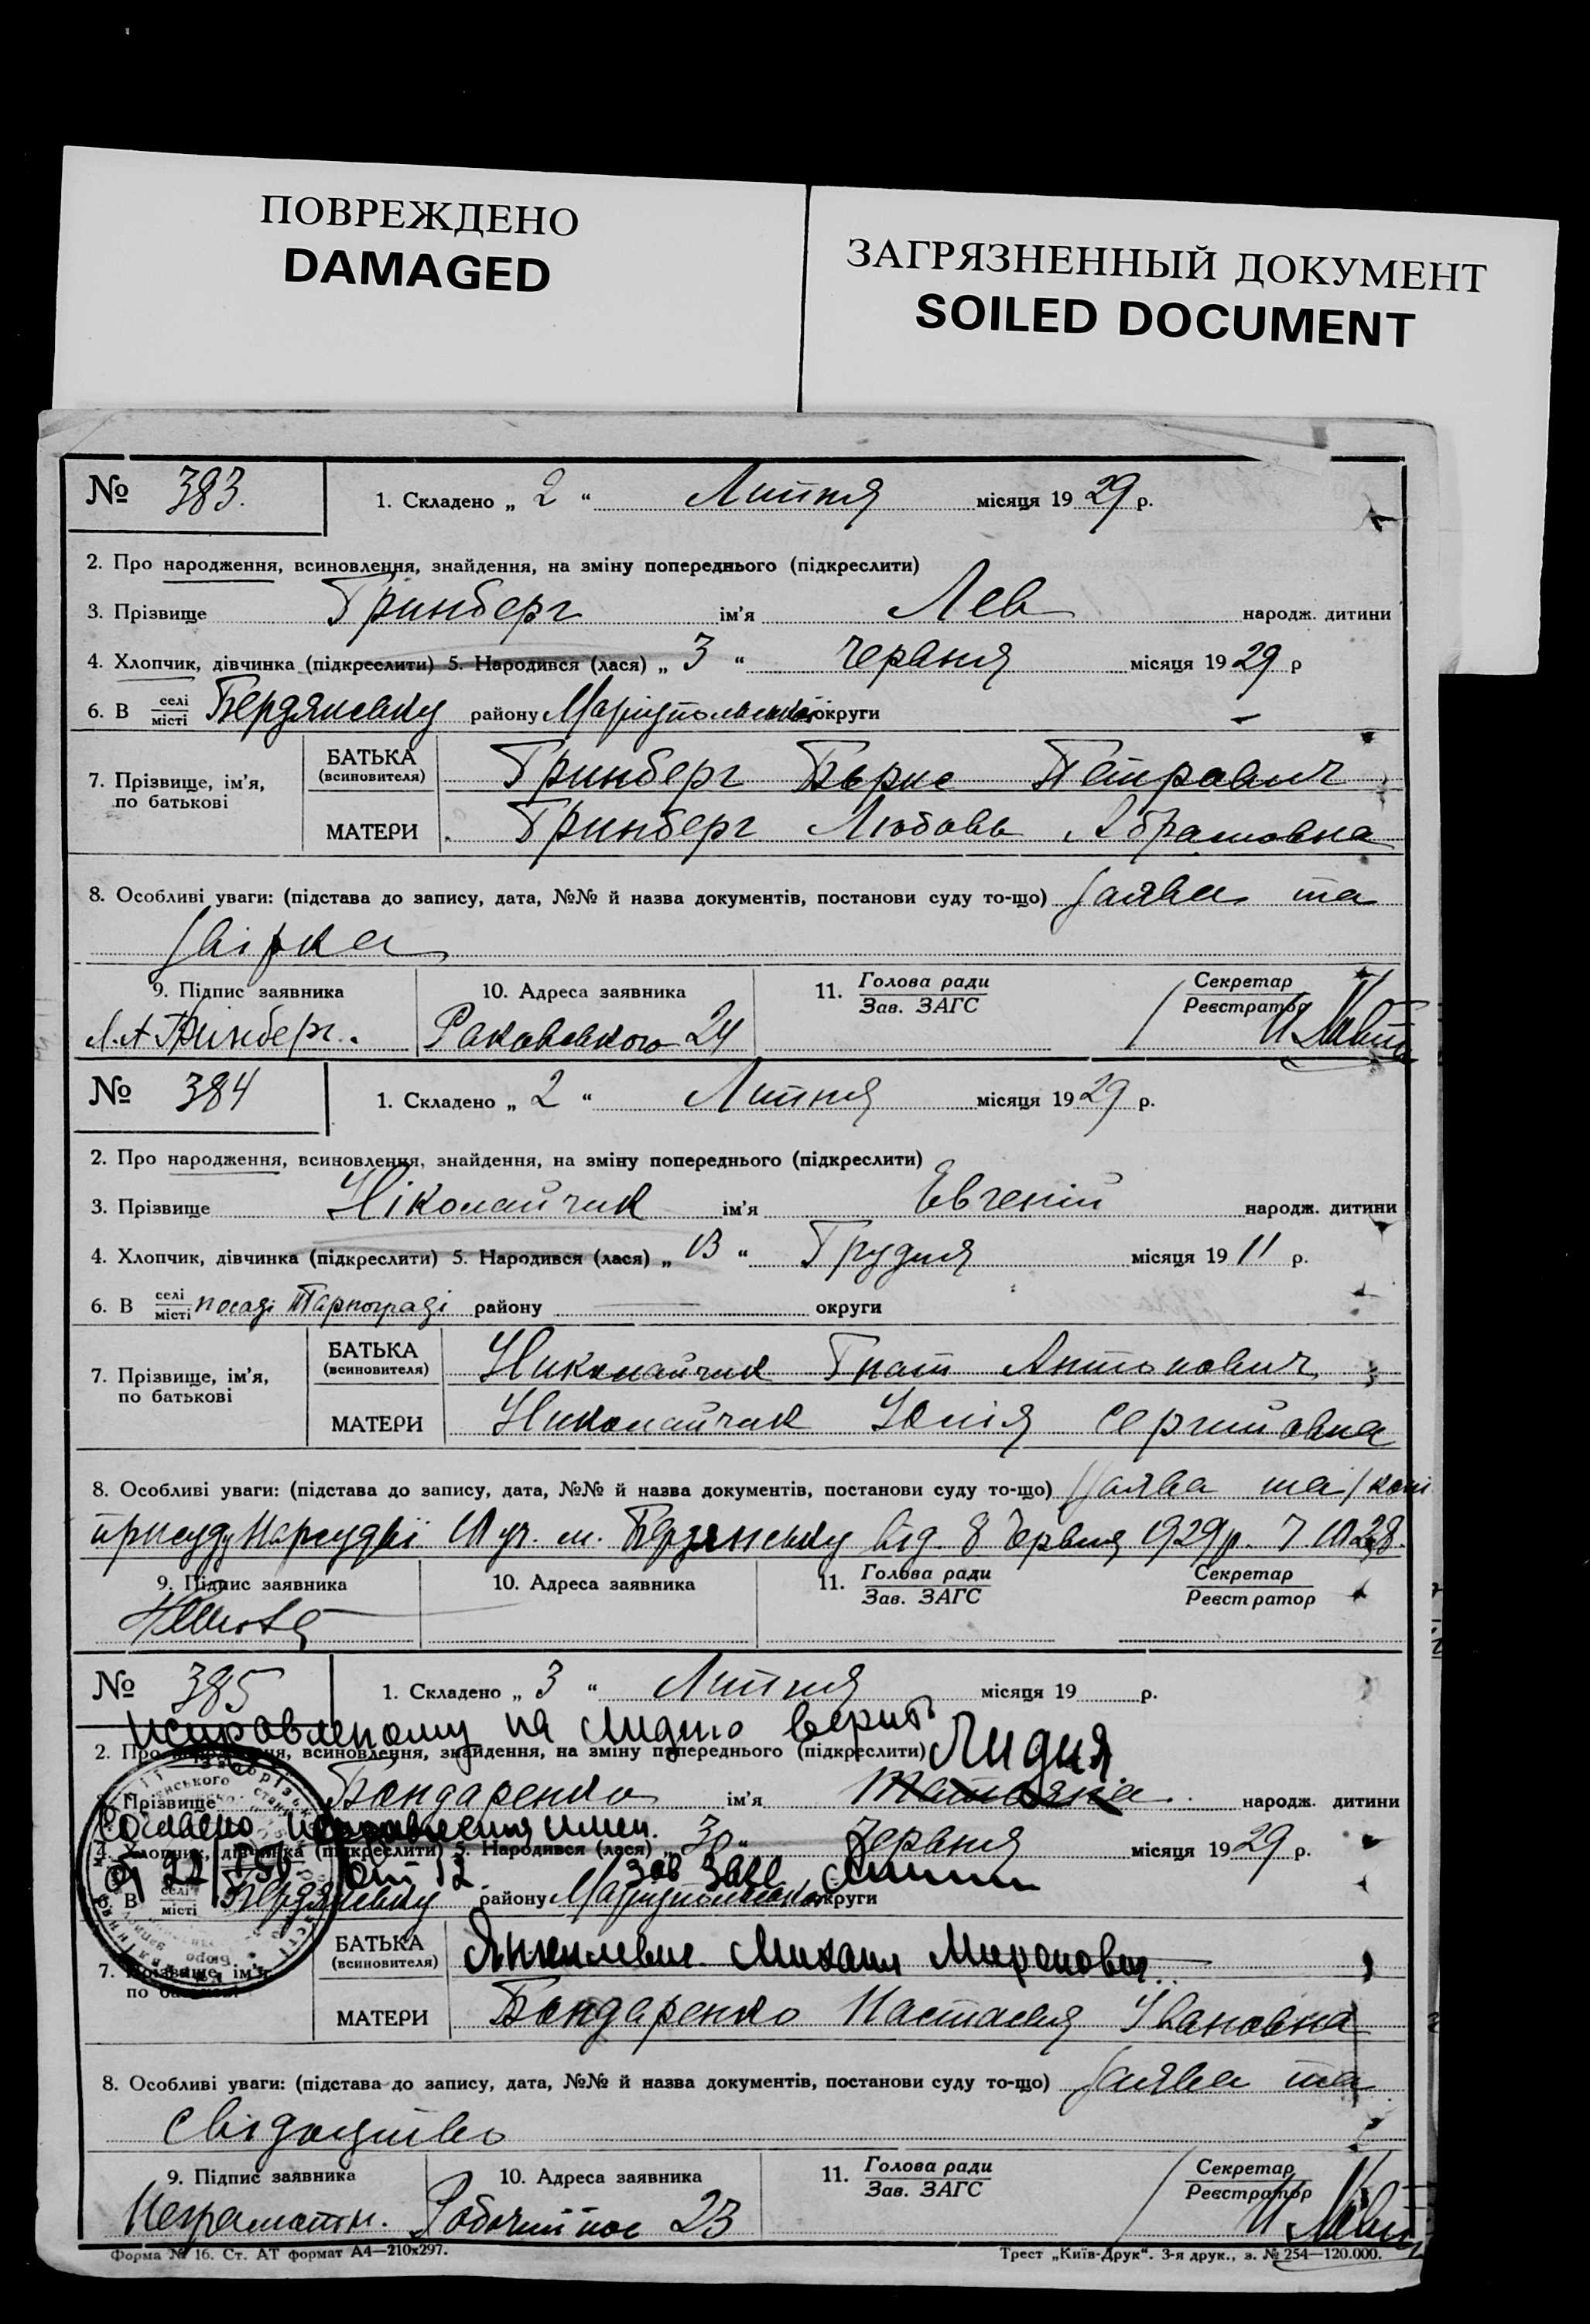 ПОВРЕЖДЕНО
DAMAGED
ЗАГРЯЗНЕННЫЙ ДОКУМЕНТ
SOILED DOCUMENT
№ 383. 1. Складено „ 2 “ Липня місяця 19 29 р.
2. Про народження, всиновлення, знайдення, на зміну попереднього (підкреслити)
3. Прізвище Грінберг ім'я Лев народж. дитини
4. Хлопчик, дівчинка (підкреслити) 5. Народився (лася) „ 3 “ Червня місяця 19 29 р
6. В селі місті Бердянську району Маріупольської округи
7. Прізвище, ім'я, по батькові БАТЬКА (всиновителя) Гринберг Борис Петрович
МАТЕРИ Гринберг Любовь Абрамовна
8. Особливі уваги: (підстава до запису, дата, №№ й назва документів, постанови суду то-що) Заява та
9. Підпис заявника 10. Адреса заявника 11. Голова ради Зав. ЗАГС Секретар Реєстратор
Л.А Грінберг. Раковського 24
№ 384 1. Складено „ 2 “ Липня місяця 19 29 р.
2. Про народження, всиновлення, знайдення, на зміну попереднього (підкреслити)
3. Прізвище Ніколайчик ім'я Евгеній народж. дитини
4. Хлопчик, дівчинка (підкреслити) 5. Народився (лася) „ 13 “ Грудня місяця 19 11 р.
6. В селі місті посаді Тарнограді району округи
7. Прізвище, ім'я, по батькові БАТЬКА (всиновителя) Николайчик Гнат Антонович
МАТЕРИ Николайчик Юлія Сергийовна
8. Особливі уваги: (підстава до запису, дата, №№ й назва документів, постанови суду то-що) Заява та копі
присуду Нарсудді уч. м. Бердянську від 8 Червня 1929 р.
9. Підпис заявника 10. Адреса заявника 11. Голова ради Зав. ЗАГС Секретар Реєстратор
№ 385 1. Складено „ 3 “ Липня місяця 19 р.
Исправленому на Лидию верить
2. Про народження, всиновлення, знайдення, на зміну попереднього (підкреслити) Лидия
3. Прізвище Бондаренко ім'я Татьяна народж. дитини
Согласно исправления имен.
4. Хлопчик, дівчинка (підкреслити) 5. Народився (лася) „ 30 “ Червня місяця 19 29 р.
Зав Загс
6. В селі місті Бердянську району Маріупольської округи
7. Прізвище, ім'я, по батькові БАТЬКА (всиновителя) Михаил Миронович
МАТЕРИ Бондаренко Настасия Івановна
8. Особливі уваги: (підстава до запису, дата, №№ й назва документів, постанови суду то-що) Заява та
свідоцтво
9. Підпис заявника 10. Адреса заявника 11. Голова ради Зав. ЗАГС Секретар Реєстратор
Неграмотн. Робочий пос 23
Форма № 16. Ст. АТ формат А4—210x297. Трест „Київ-Друк“. 3-я друк., з. № 254—120.000.